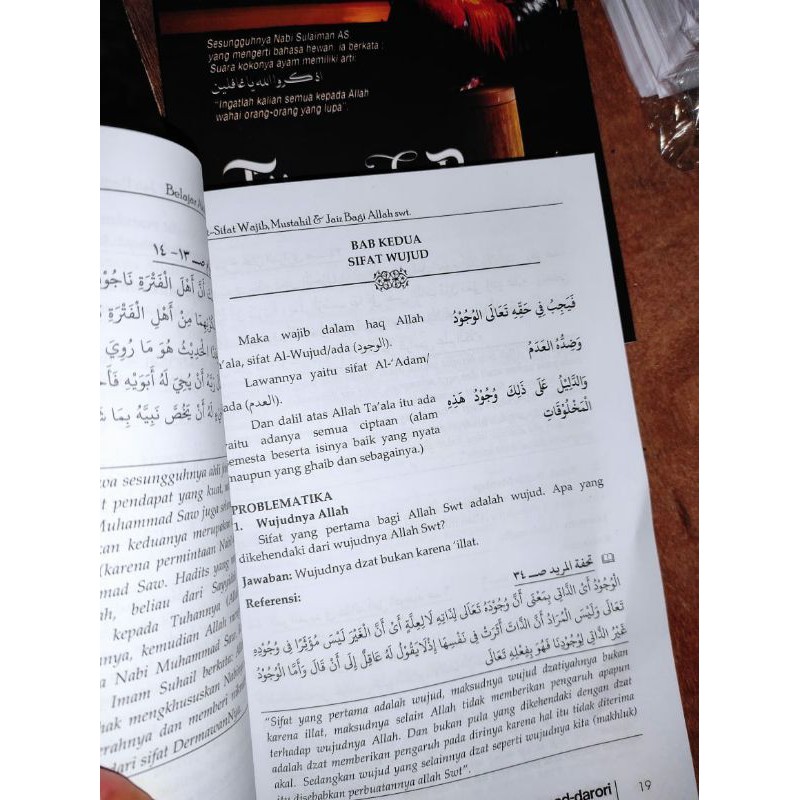 Sesungguhnya Nabi Sulaiman AS
yang mengerti bahasa hewan, ia berkata :
Suara kokonya ayam memiliki arti:
اذكروا الله يا غافلين
"Ingatlah kalian semua kepada Allah
wahai orang-orang yang lupa".
Belajar
١٣-١٤
أَنَّ أَهْلَ الْفَتْرَةِ
مِنْ أَهْلِ الْفَتْرَةِ
الْحَدِيْثُ هُوَ مَا رُوِيَ
أَنْ يُحْيِيَ لَهُ أَبَوَيْهِ
لَهُ أَنْ يَخُصَّ نَبِيَّهُ بِمَا
sesungguhnya ahli
pendapat yang kuat,
Muhammad Saw juga
keduanya merupakan
(karena permintaan Nabi
Saw. Hadits yang
beliau dari Sayyidah
kepada Tuhannya
kemudian Allah
Nabi Muhammad Saw
Imam Suhail berkata:
mengkhususkan Nabi
dan memberi
dari sifat DermawanNya
-Sifat Wajib, Mustahil & Jaiz Bagi Allah swt.
BAB KEDUA
SIFAT WUJUD
فَيَجِبُ فِي حَقِّهِ تَعَالَى الْوُجُوْدُ
Maka wajib dalam haq Allah
Ta'ala, sifat Al-Wujud/ada (الوجود).
وَضِدُّهُ الْعَدَمُ
Lawannya yaitu sifat Al-'Adam/
ada (العدم).
وَالدَّلِيْلُ عَلَى ذَلِكَ وُجُوْدُ هَذِهِ
الْمَخْلُوْقَاتِ
Dan dalil atas Allah Ta'ala itu ada
yaitu adanya semua ciptaan (alam
semesta beserta isinya baik yang nyata
maupun yang ghaib dan sebagainya.)
PROBLEMATIKA
1. Wujudnya Allah
Sifat yang pertama bagi Allah Swt adalah wujud. Apa yang
dikehendaki dari wujudnya Allah Swt?
Jawaban: Wujudnya dzat bukan karena 'illat.
Referensi:
تحفة المريد صـ ٣٤
الْوُجُوْدُ أَيْ الذَّاتِي بِمَعْنَى أَنَّ وُجُوْدَهُ تَعَالَى لِذَاتِهِ لَا لِعِلَّةٍ أَيْ أَنَّ الْغَيْرَ لَيْسَ مُؤَثِّرًا فِي وُجُوْدِهِ
تَعَالَى وَلَيْسَ الْمُرَادُ أَنَّ الذَّاتَ أَثَّرَتْ فِي نَفْسِهَا إِذْ لَا يَقُوْلُ لَهُ عَاقِلٌ إِلَى أَنْ قَالَ وَأَمَّا الْوُجُوْدُ
غَيْرُ الذَّاتِي لِوُجُوْدِنَا فَهُوَ بِفِعْلِهِ تَعَالَى
"Sifat yang pertama adalah wujud, maksudnya wujud dzatiyahnya bukan
karena illat, maksudnya selain Allah tidak memberikan pengaruh apapun
terhadap wujudnya Allah. Dan bukan pula yang dikehendaki dengan dzat
adalah dzat memberikan pengaruh pada dirinya karena hal itu tidak diterima
akal. Sedangkan wujud yang selainnya dzat seperti wujudnya kita (makhluk)
itu disebabkan perbuatannya allah Swt".
ad-darori | 19